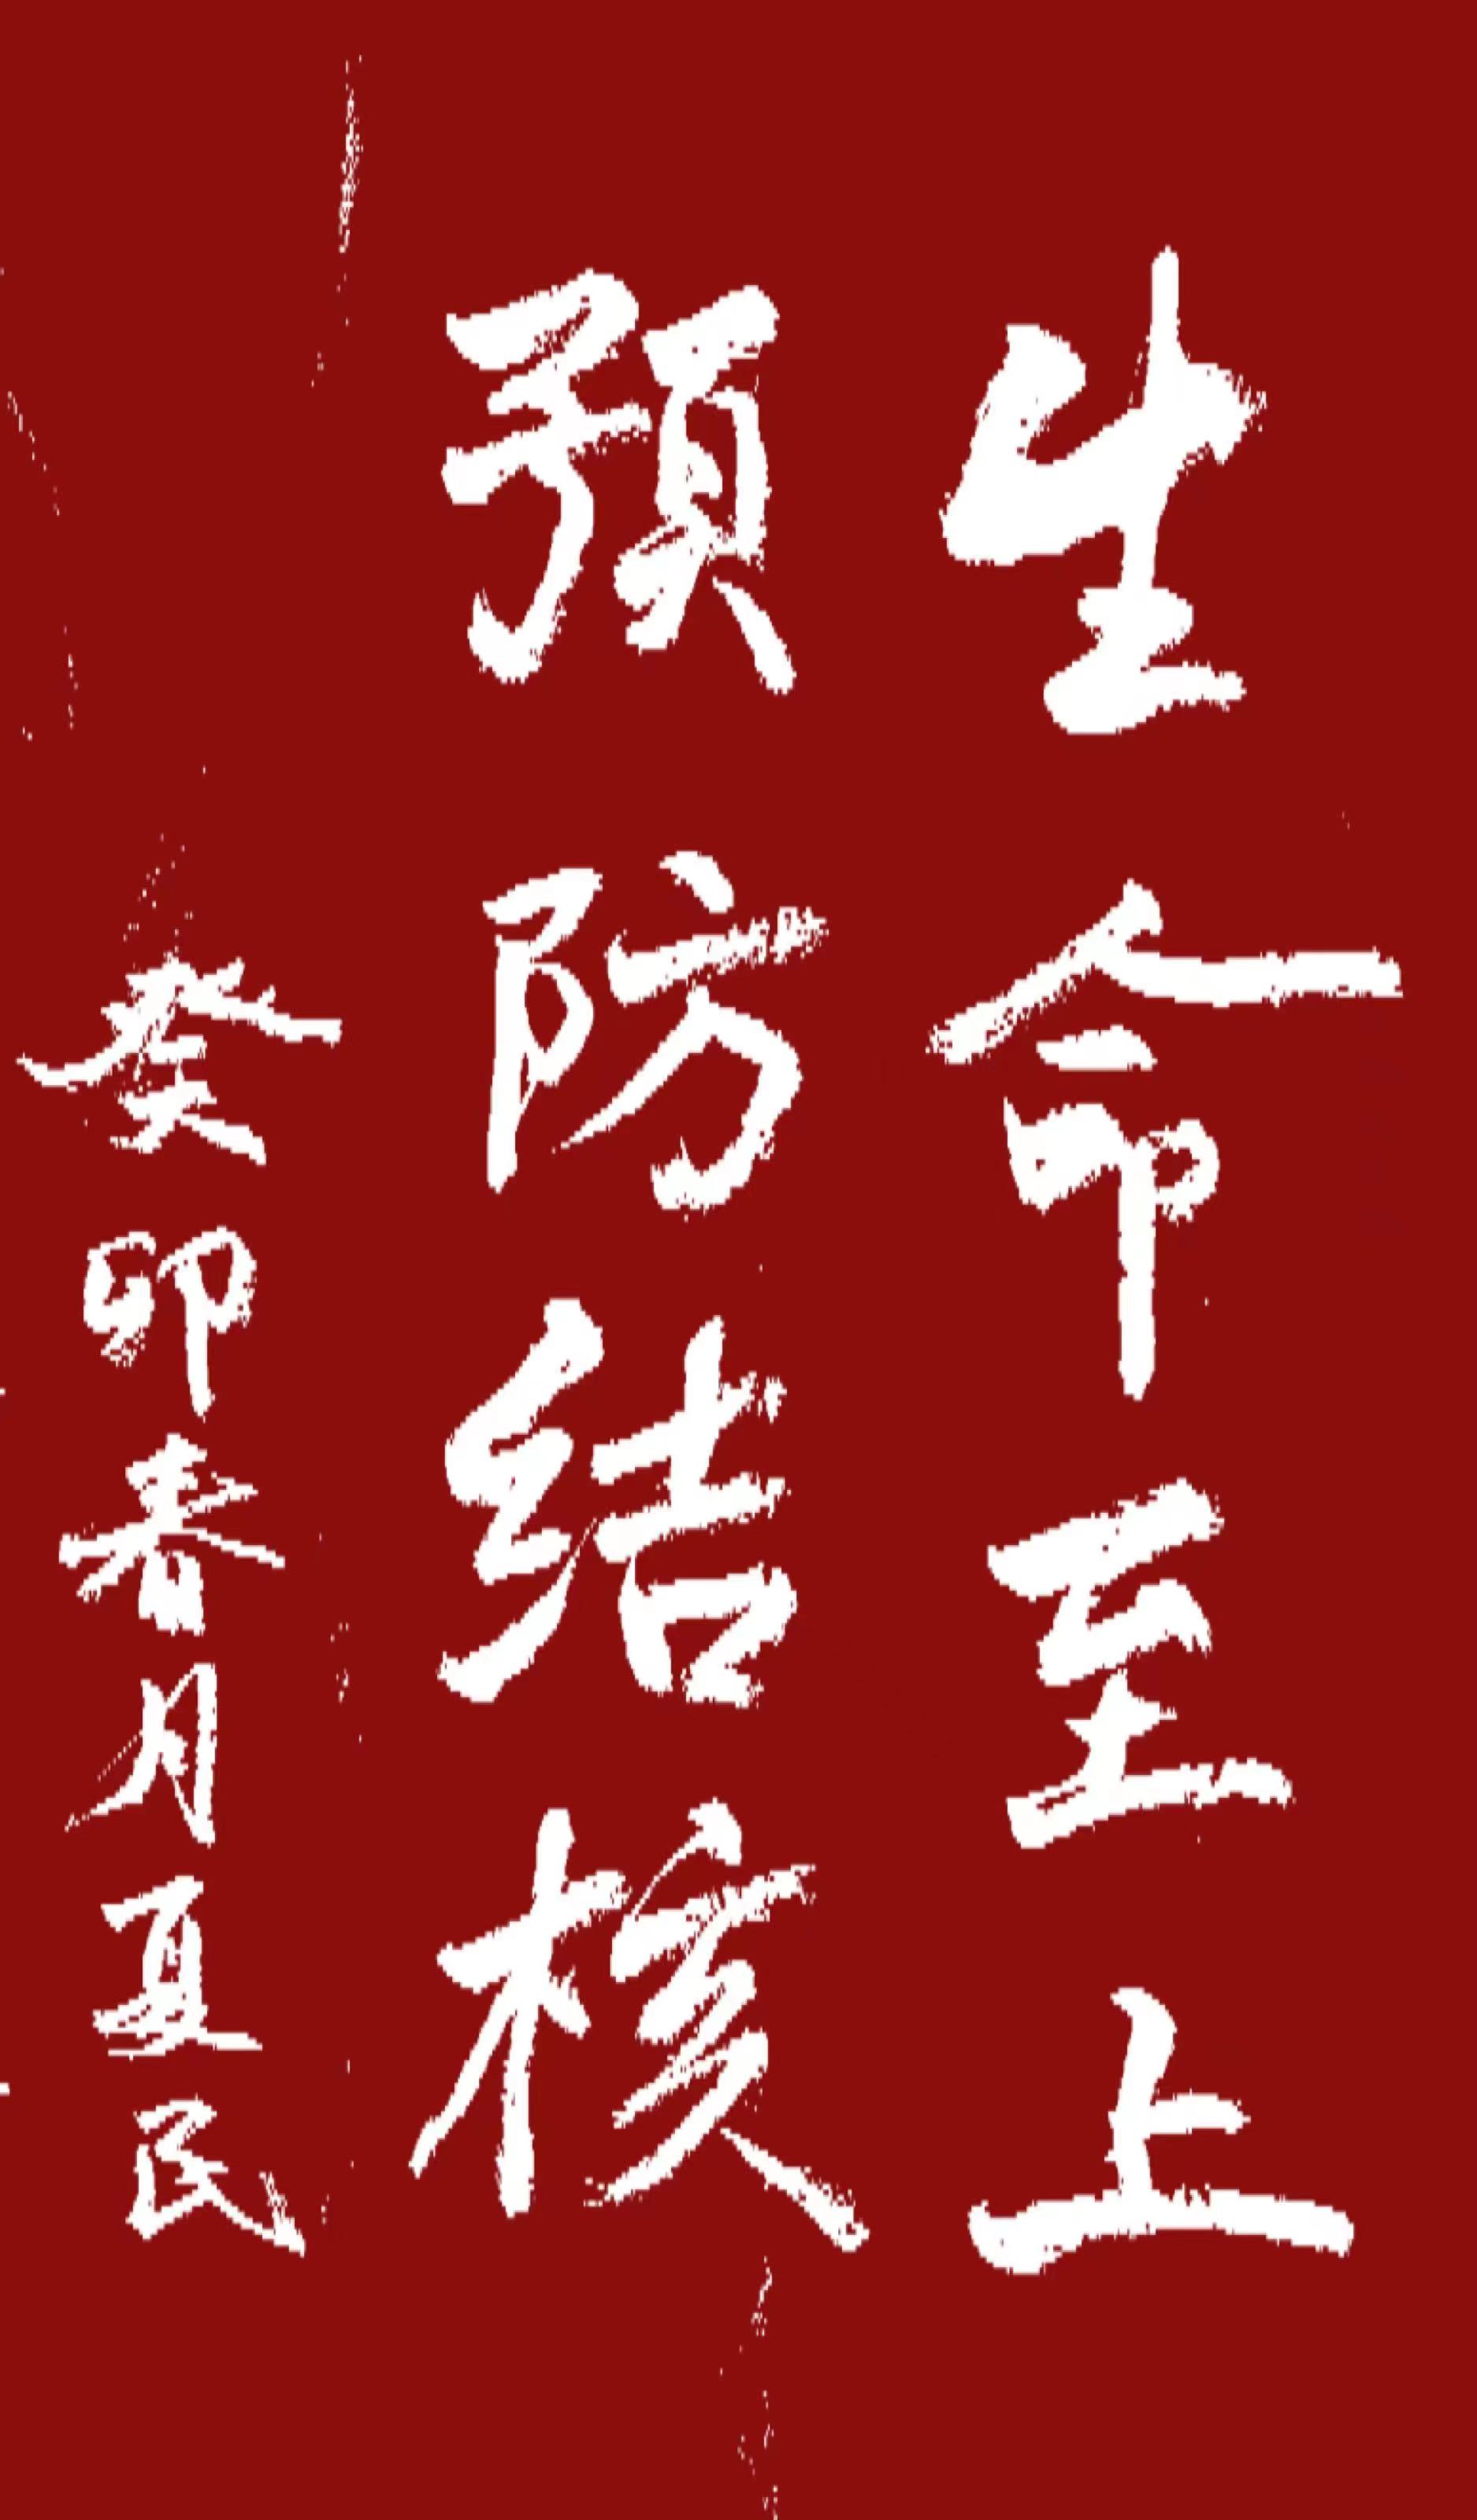 生命至上
预防结核
癸卯春月夏民